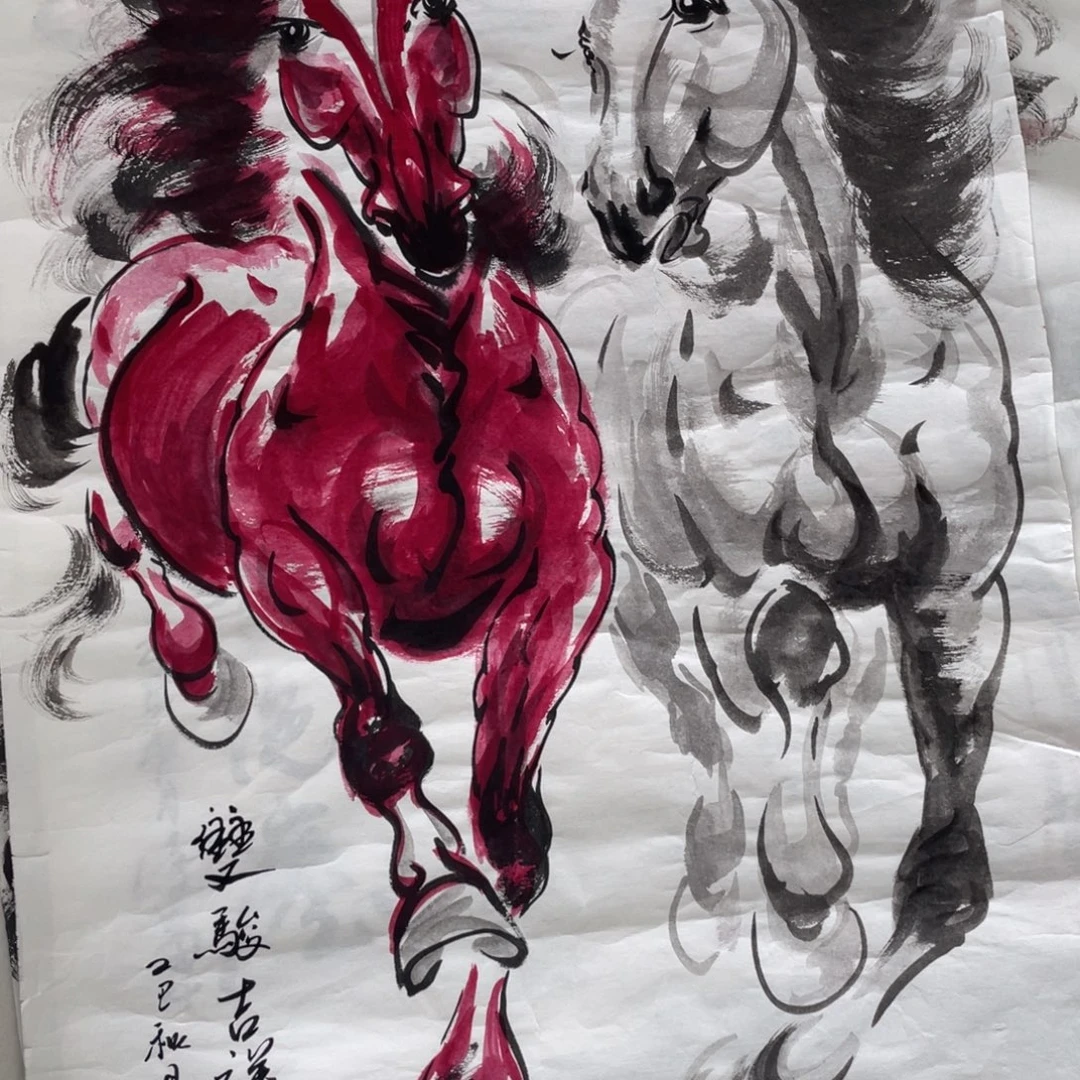 雙駿吉祥
乙巳秋月